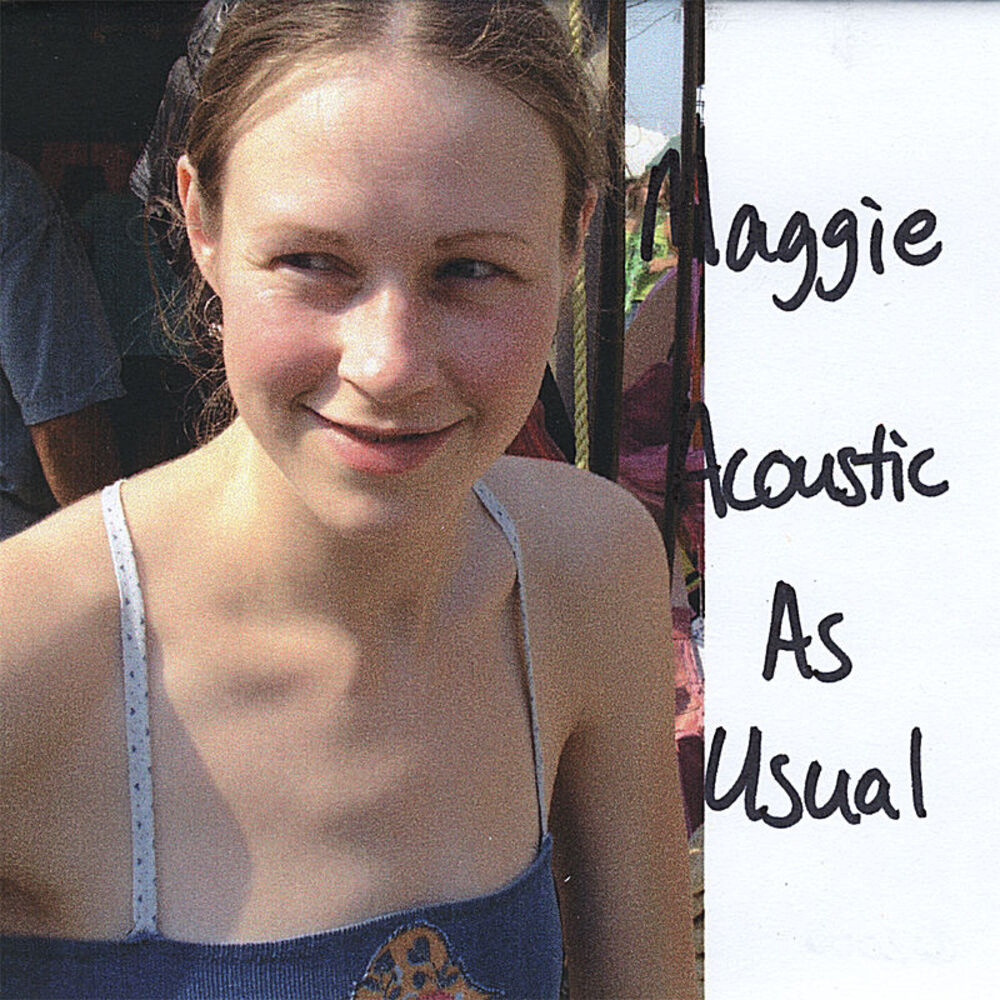 Maggie
Acoustic
As
Usual